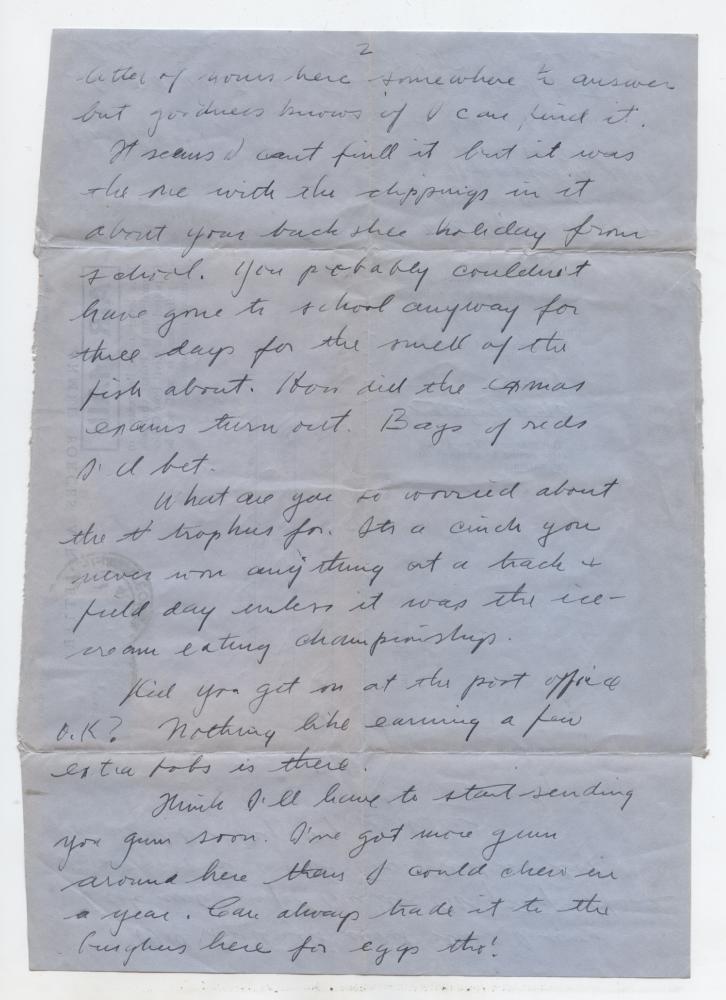 2
letter of yours here somewhere to answer
but goodness knows if I can find it.
It seems I can't find it but it was
the one with the clippings in it
about your back shee holiday from
school. You probably couldn't
have gone to school anyway for
three days for the smell of the
fish about. How did the Xmas
exams turn out. Bags of reds
I'd bet.
What are you so worried about
the trophies for. Its a cinch you
never won anything at a track &
field day unless it was the ice-
cream eating championships.
Did you get on at the post office
O.K? Nothing like earning a few
extra bobs is there.
Think I'll have to start sending
you gum soon. I've got more gum
around here than I could chew in
a year. Can always trade it to the
here for eggs tho!
ARMED FORCES AIR LETTER